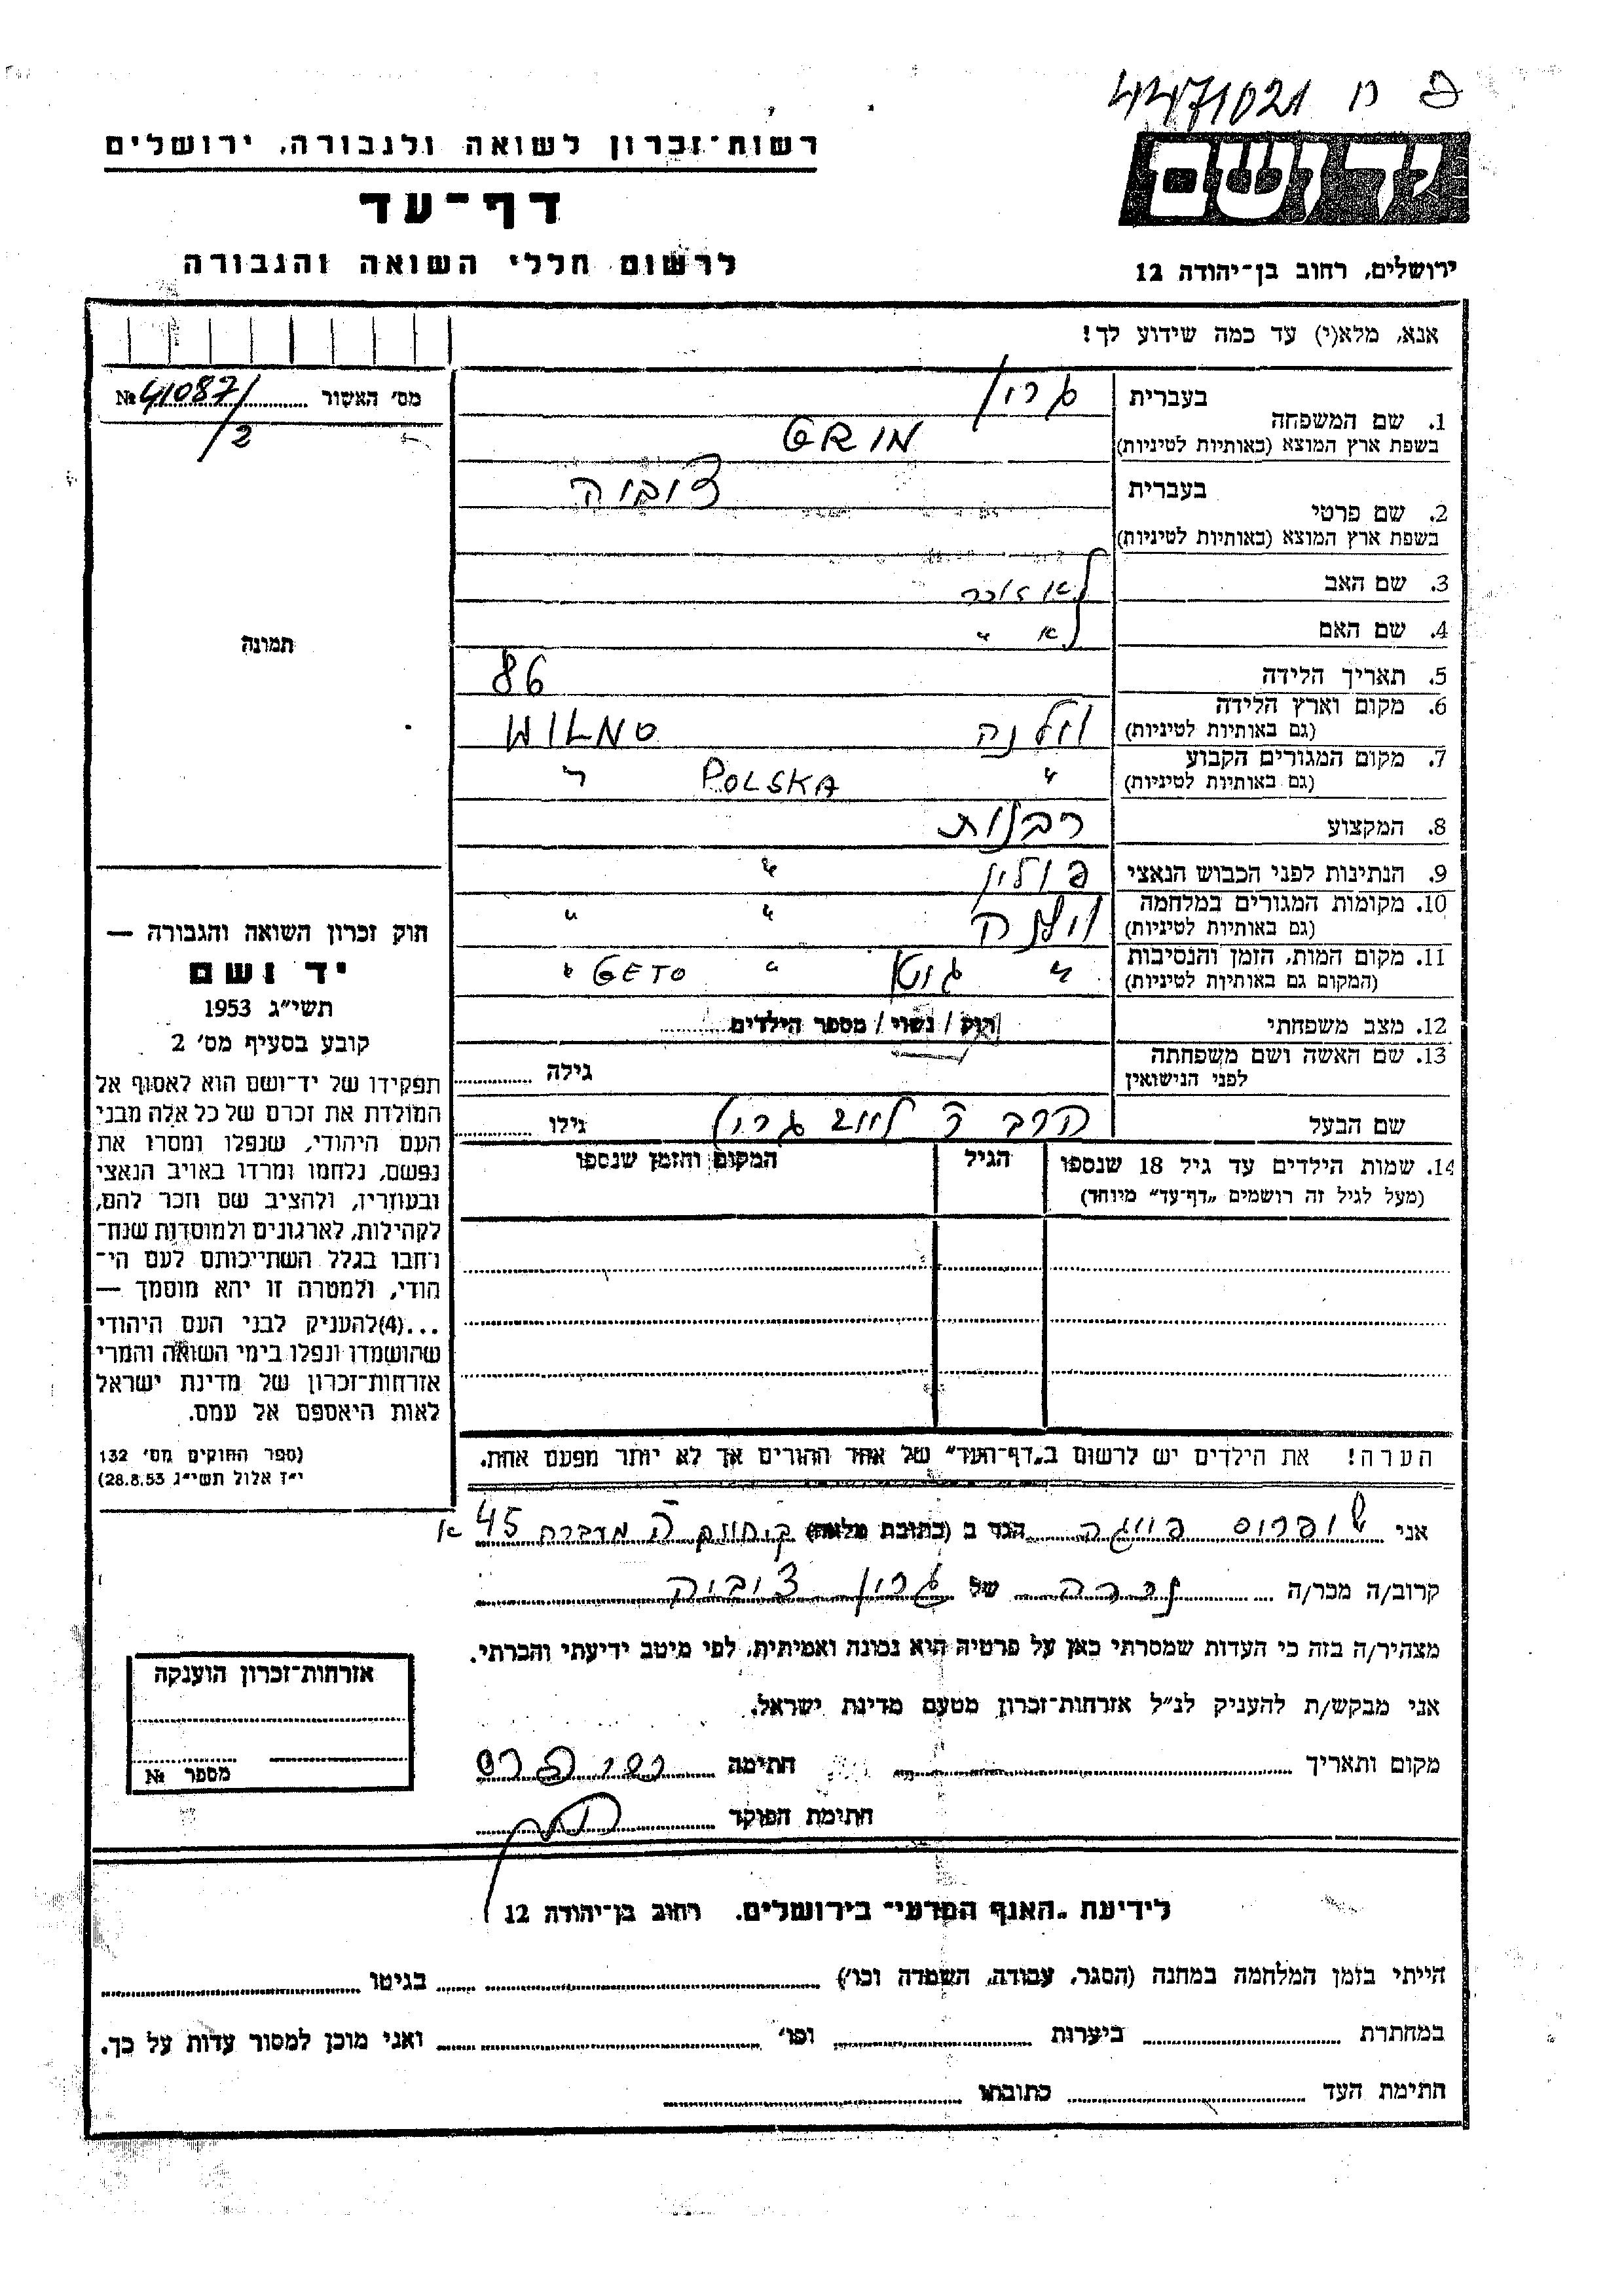 פ ח 4471021
יד ושם
רשות־זכרון לשואה ולגבורה, ירושלים
דף־עד
לרשום חללי השואה והגבורה
ירושלים, רחוב בן־יהודה 12
אנא, מלא(י) עד כמה שידוע לך!
מס׳ האשור 41087 №
/2
1. שם המשפחה
בעברית גרין
בשפת ארץ המוצא (באותיות לטיניות)
2. שם פרטי
בעברית צוביה
בשפת ארץ המוצא (באותיות לטיניות)
3. שם האב לא זוכר
4. שם האם לא "
5. תאריך הלידה 86
6. מקום וארץ הלידה
(גם באותיות לטיניות) וילנה
7. מקום המגורים הקבוע
(גם באותיות לטיניות) " POLSKA
8. המקצוע רבנות
9. הנתינות לפני הכבוש הנאצי פולין "
10. מקומות המגורים במלחמה
(גם באותיות לטיניות) וילנה " "
11. מקום המות, הזמן והנסיבות
(המקום גם באותיות לטיניות) " גטו " GETO "
12. מצב משפחתי רוק / נשוי / מספר הילדים
13. שם האשה ושם משפחתה
לפני הנישואין
גילה
שם הבעל הרב גרין
גילו
14. שמות הילדים עד גיל 18 שנספו
(מעל לגיל זה רושמים „דף־עד״ מיוחד)
הגיל
המקום והזמן שנספו
הערה! את הילדים יש לרשום ב„דף־העד״ של אחד ההורים אך לא יותר מפעם אחת.
תמונה
חוק זכרון השואה והגבורה —
יד ושם
תשי״ג 1953
קובע בסעיף מס׳ 2
תפקידו של יד־ושם הוא לאסוף אל
המולדת את זכרם של כל אלה מבני
העם היהודי, שנפלו ומסרו את
נפשם, נלחמו ומרדו באויב הנאצי
ובעוזריו, ולהציב שם וזכר להם,
לקהילות, לארגונים ולמוסדות שנח־
רבו בגלל השתייכותם לעם הי־
הודי, ולמטרה זו יהא מוסמך —
...(4)להעניק לבני העם היהודי
שהושמדו ונפלו בימי השואה והמרי
אזרחות־זכרון של מדינת ישראל
לאות היאספם אל עמם.
(ספר החוקים מס׳ 132
י״ז אלול תשי״ג 28.8.53)
אני הגר ב (כתובת מלאה) 45 א
קרוב/ה מכר/ה של גרין צוביה
מצהיר/ה בזה כי העדות שמסרתי כאן על פרטיה היא נכונה ואמיתית, לפי מיטב ידיעתי והכרתי.
אני מבקש/ת להעניק לנ״ל אזרחות־זכרון מטעם מדינת ישראל.
מקום ותאריך חתימה
חתימת הפוקד
אזרחות־זכרון הוענקה
מספר №
לידיעת „האגף המדעי״ בירושלים. רחוב בן־יהודה 12
הייתי בזמן המלחמה במחנה (הסגר, עבודה, השמדה וכו׳) בגיטו
במחתרת ביערות וכו׳ ואני מוכן למסור עדות על כך.
חתימת העד כתובתו